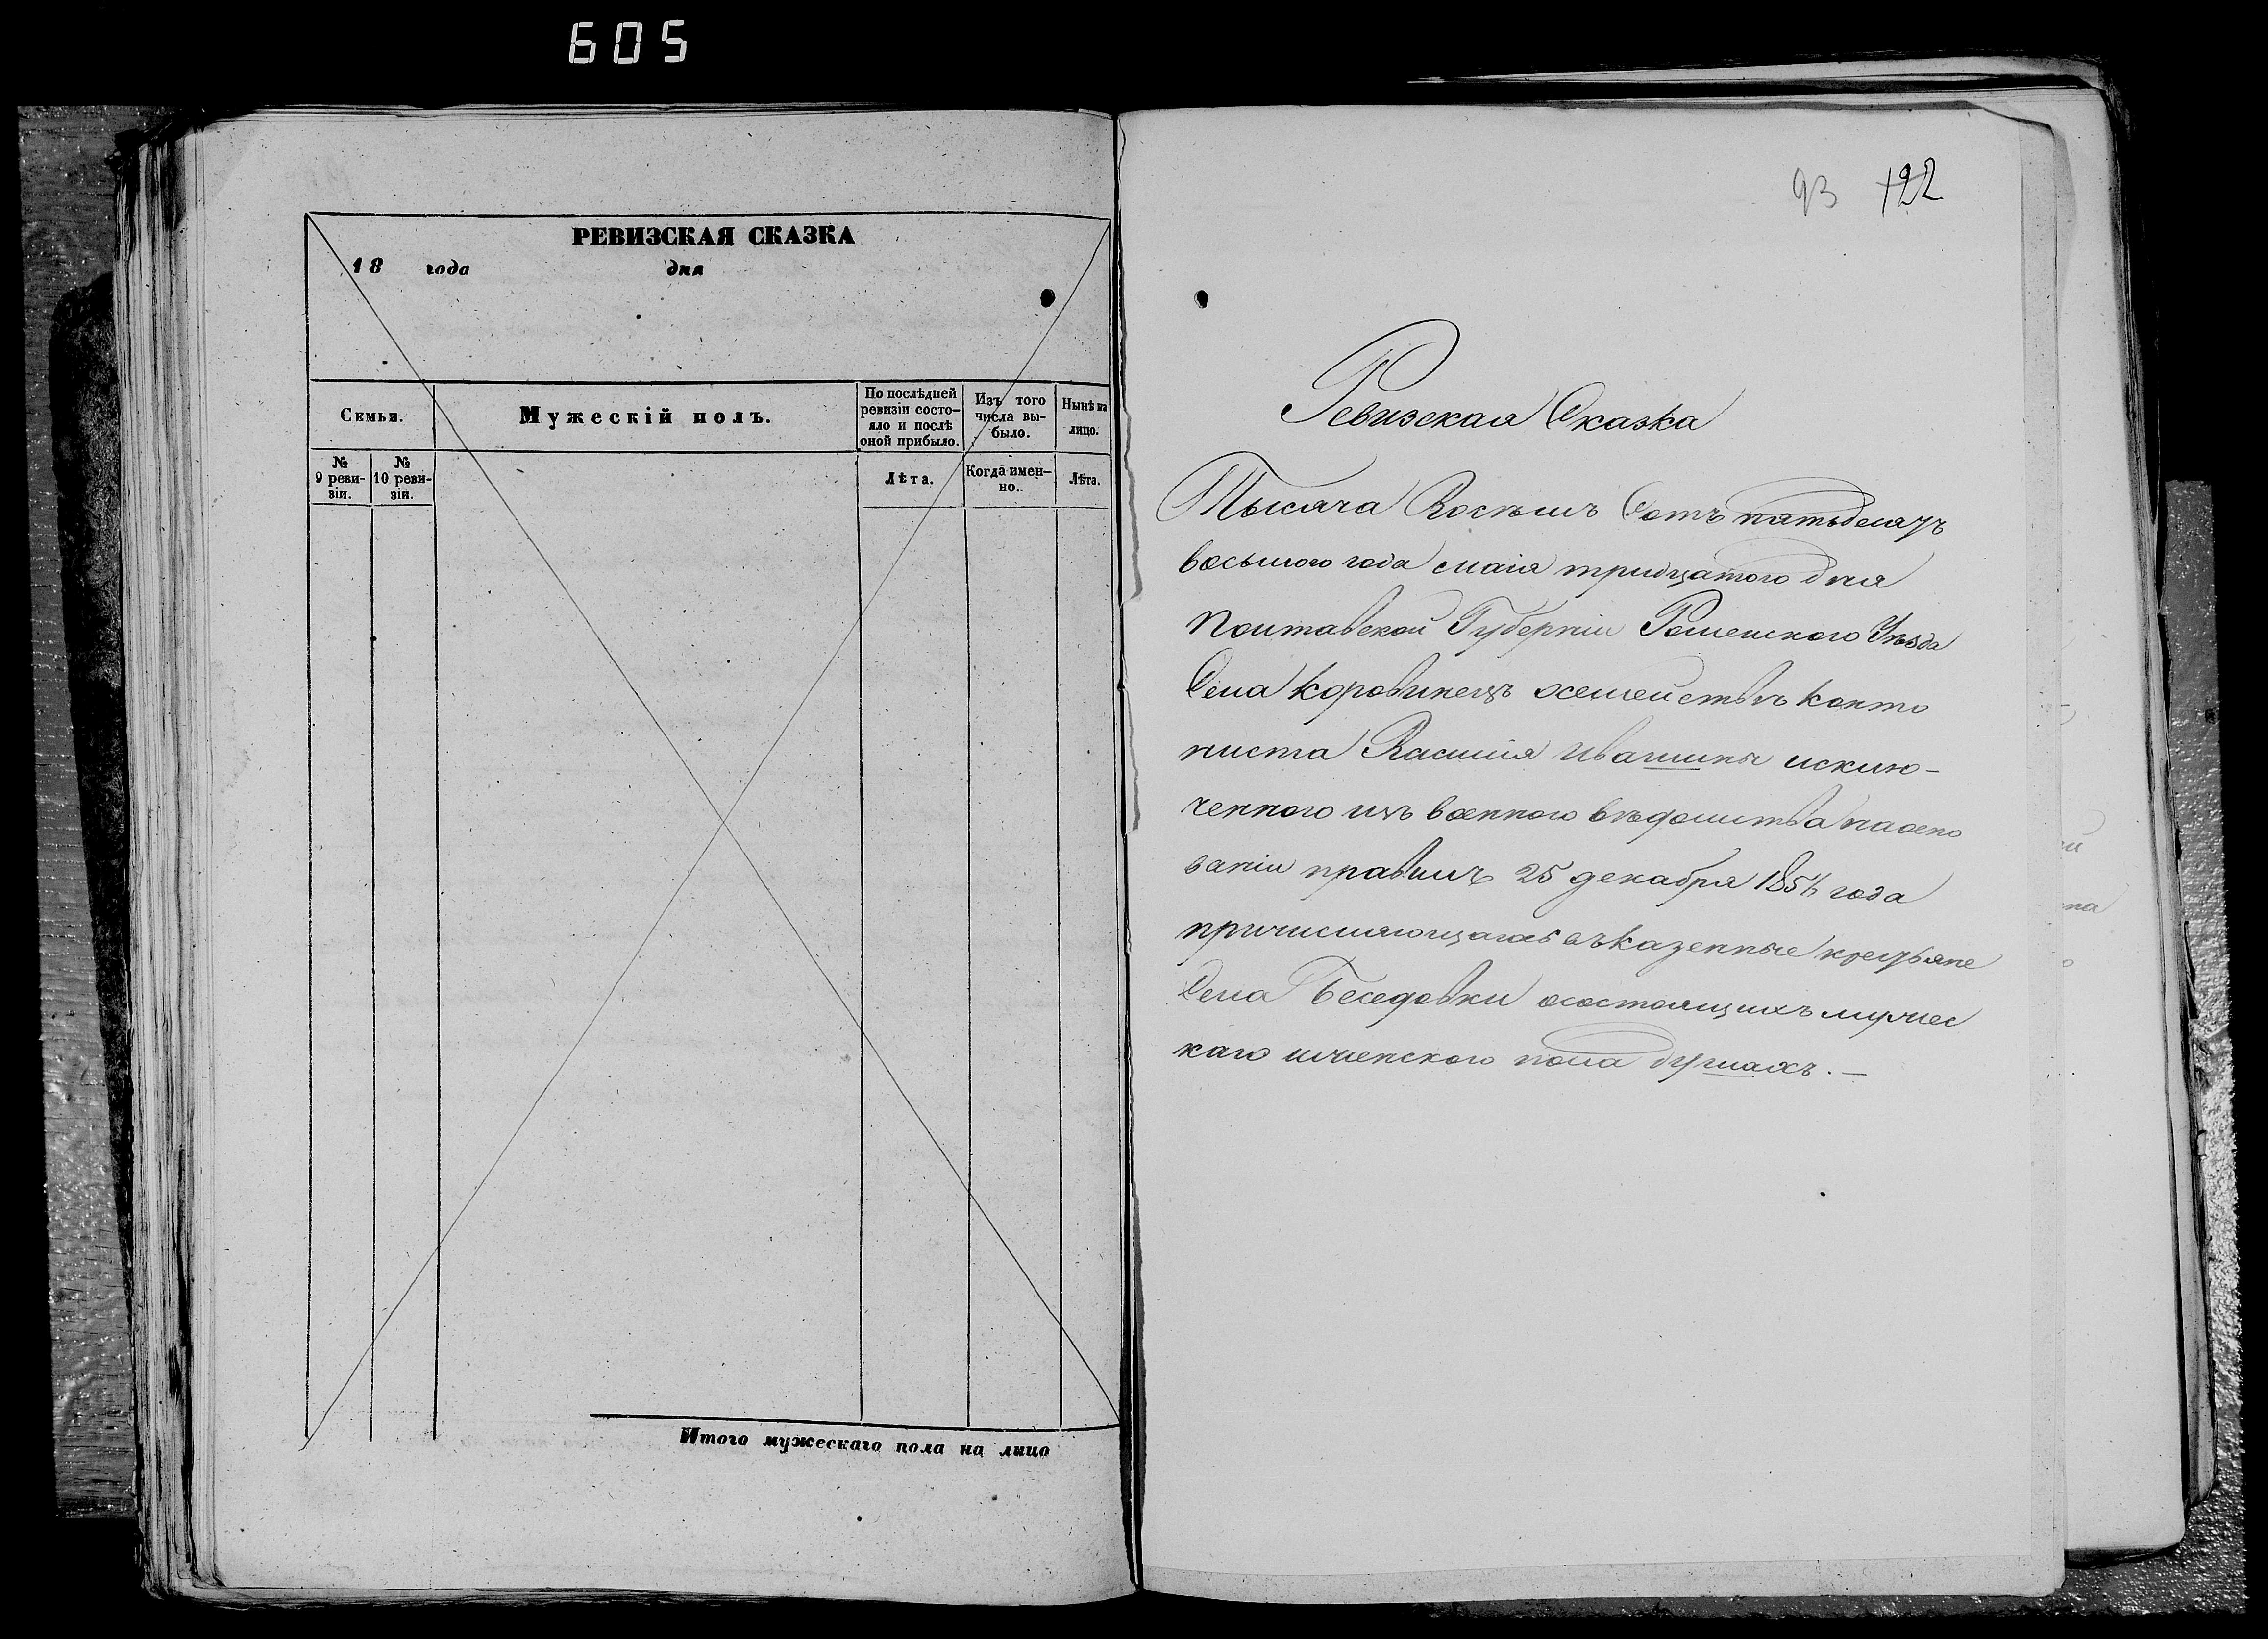 605
РЕВИЗСКАЯ СКАЗКА
18 года дня
Семьи.
Мужескій полъ.
По послѣдней ревизіи состо-
яло и послѣ оной прибыло.
Изъ того числа вы-
было.
Нынѣ на лицо.
№ 9 реви-
зіи.
№ 10 реви-
зіи.
Лѣта.
Когда имен-
но.
Лѣта.
Итого мужескаго пола на лицо
93 122
Ревизская Сказка
Тысяча Восѣмъ Сотъ пятьдесятъ
восьмого года маія тридцатого дня
Полтавской Губерніи Роменского Уѣзда
Села Коровинецъ осемействѣ канто
ниста Василія Ивашины исклю-
ченного изъ военного вѣдомства наосно
ваніи правилъ 25 декабря 1856 года
причисляющагось въказенные крестьяне
Села Беседовки осостоящихъ мужес
каго иженского пола душахъ. —